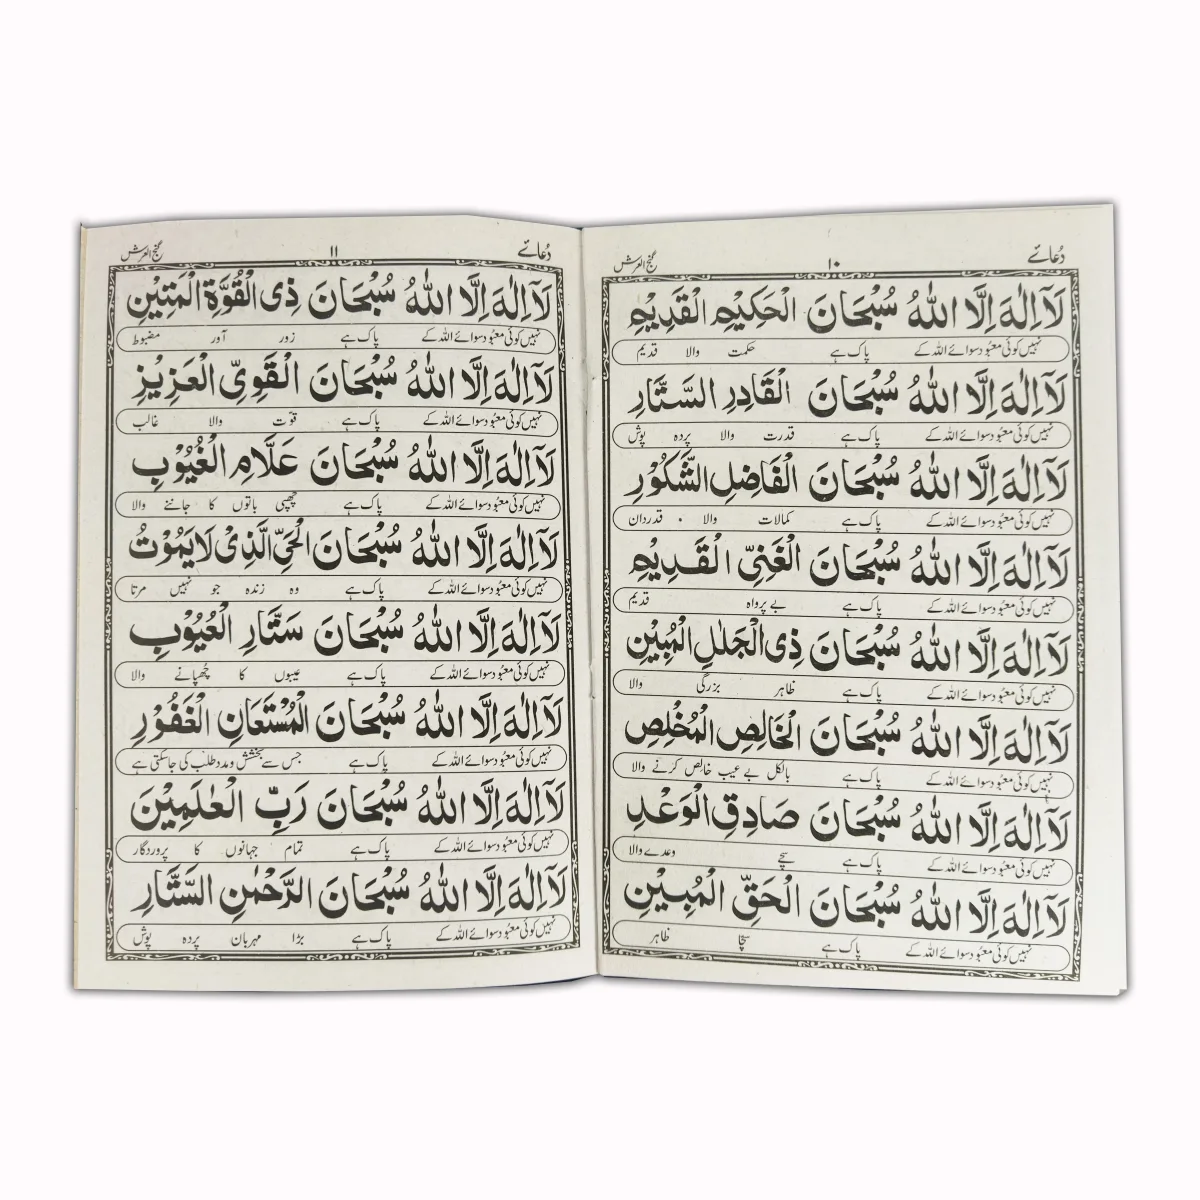 دُعائے ۱۰ گنج العرش
لَآ اِلٰهَ اِلَّا اللّٰهُ سُبْحَانَ الْحَكِيْمِ الْقَدِيْمِ
نہیں کوئی معبود سوائے اللہ کے پاک ہے حکمت والا قدیم
لَآ اِلٰهَ اِلَّا اللّٰهُ سُبْحَانَ الْقَادِرِ السَّتَّارِ
نہیں کوئی معبود سوائے اللہ کے پاک ہے قدرت والا پردہ پوش
لَآ اِلٰهَ اِلَّا اللّٰهُ سُبْحَانَ الْفَاضِلِ الشَّكُوْرِ
نہیں کوئی معبود سوائے اللہ کے پاک ہے کمالات والا قدردان
لَآ اِلٰهَ اِلَّا اللّٰهُ سُبْحَانَ الْغَنِيِّ الْقَدِيْمِ
نہیں کوئی معبود سوائے اللہ کے پاک ہے بے پرواہ قدیم
لَآ اِلٰهَ اِلَّا اللّٰهُ سُبْحَانَ ذِى الْجَلٰلِ الْمُبِيْنِ
نہیں کوئی معبود سوائے اللہ کے پاک ہے ظاہر بزرگی والا
لَآ اِلٰهَ اِلَّا اللّٰهُ سُبْحَانَ الْخَالِصِ الْمُخْلِصِ
نہیں کوئی معبود سوائے اللہ کے پاک ہے بالکل بے عیب خالص کرنے والا
لَآ اِلٰهَ اِلَّا اللّٰهُ سُبْحَانَ صَادِقِ الْوَعْدِ
نہیں کوئی معبود سوائے اللہ کے پاک ہے سچے وعدے والا
لَآ اِلٰهَ اِلَّا اللّٰهُ سُبْحَانَ الْحَقِّ الْمُبِيْنِ
نہیں کوئی معبود سوائے اللہ کے پاک ہے سچا ظاہر
دُعائے ۱۱ گنج العرش
لَآ اِلٰهَ اِلَّا اللّٰهُ سُبْحَانَ ذِى الْقُوَّةِ الْمَتِيْنِ
نہیں کوئی معبود سوائے اللہ کے پاک ہے زور آور مضبوط
لَآ اِلٰهَ اِلَّا اللّٰهُ سُبْحَانَ الْقَوِيِّ الْعَزِيْزِ
نہیں کوئی معبود سوائے اللہ کے پاک ہے قوت والا غالب
لَآ اِلٰهَ اِلَّا اللّٰهُ سُبْحَانَ عَلَّامِ الْغُيُوْبِ
نہیں کوئی معبود سوائے اللہ کے پاک ہے چھپی باتوں کا جاننے والا
لَآ اِلٰهَ اِلَّا اللّٰهُ سُبْحَانَ الْحَيِّ الَّذِىْ لَا يَمُوْتُ
نہیں کوئی معبود سوائے اللہ کے پاک ہے وہ زندہ جو نہیں مرتا
لَآ اِلٰهَ اِلَّا اللّٰهُ سُبْحَانَ سَتَّارِ الْعُيُوْبِ
نہیں کوئی معبود سوائے اللہ کے پاک ہے عیبوں کا چُھپانے والا
لَآ اِلٰهَ اِلَّا اللّٰهُ سُبْحَانَ الْمُسْتَعَانِ الْغَفُوْرِ
نہیں کوئی معبود سوائے اللہ کے پاک ہے جس سے بخشش و مدد طلب کی جاسکتی ہے
لَآ اِلٰهَ اِلَّا اللّٰهُ سُبْحَانَ رَبِّ الْعٰلَمِيْنَ
نہیں کوئی معبود سوائے اللہ کے پاک ہے تمام جہانوں کا پروردگار
لَآ اِلٰهَ اِلَّا اللّٰهُ سُبْحَانَ الرَّحْمٰنِ السَّتَّارِ
نہیں کوئی معبود سوائے اللہ کے پاک ہے بڑا مہربان پردہ پوش